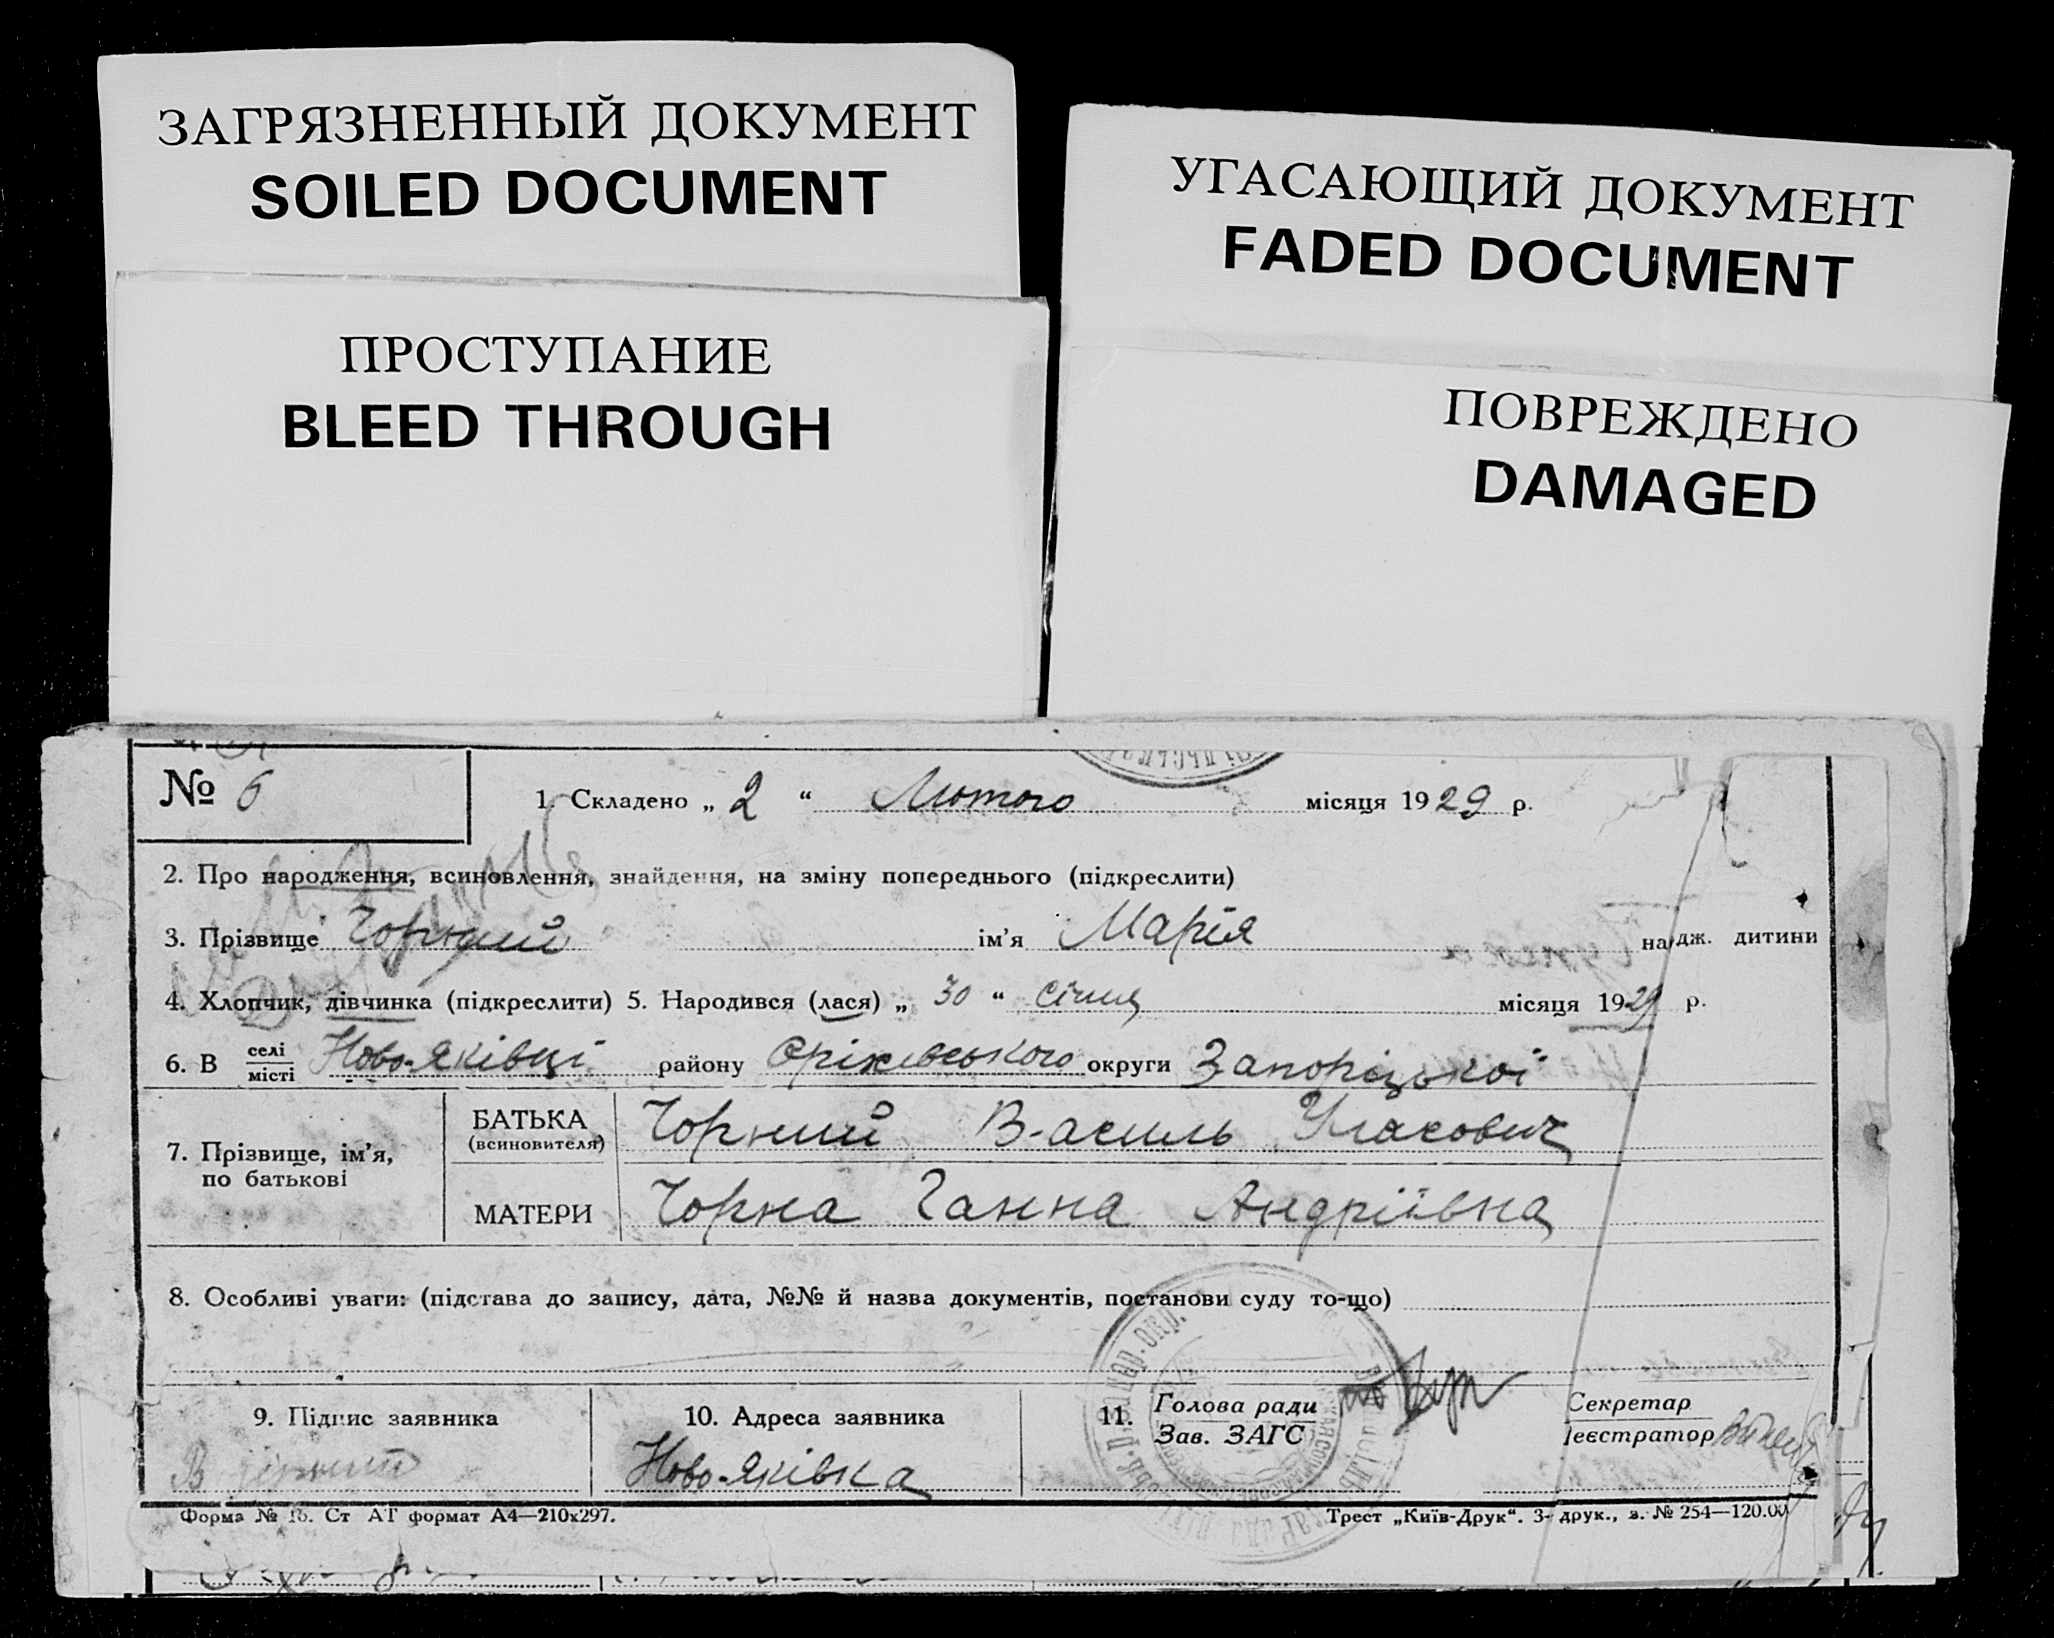 ЗАГРЯЗНЕННЫЙ ДОКУМЕНТ
SOILED DOCUMENT
УГАСАЮЩИЙ ДОКУМЕНТ
FADED DOCUMENT
ПРОСТУПАНИЕ
BLEED THROUGH
ПОВРЕЖДЕНО
DAMAGED
№ 6
1. Складено „ 2 “ Лютого місяця 1929 р.
2. Про народження, всиновлення, знайдення, на зміну попереднього (підкреслити)
3. Прізвище Чорный ім’я Марія на дж. дитини
4. Хлопчик, дівчинка (підкреслити) 5. Народився (лася) „ 30 “ січня місяця 1929 р.
6. В селі місті Ново-Яківці району Оріхівського округи Запоріцької
7. Прізвище, ім’я, по батькові
БАТЬКА (всиновителя) Чорний Василь
МАТЕРИ Чорна Ганна Андріївна
8. Особливі уваги: (підстава до запису, дата, №№ й назва документів, постанови суду то-що)
9. Підпис заявника
10. Адреса заявника
Ново-Яківка
11. Голова ради
Зав. ЗАГС
Секретар
Реєстратор
Форма № 16. Ст АТ формат А4—210х297.
Трест „Київ-Друк“. 3- друк., з. № 254—120.00